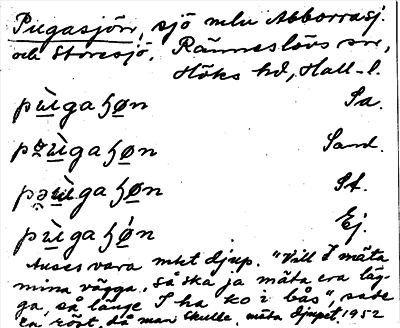 Pugasjön, sjö mlu Abborrasj.
och Storesjö. Ränneslövs sn,
Höks hd, Hall. l.
pùgaɧøn Sa.
pɜùgaɧøn Sand.
pəùgaɧøn St.
pùgaɧøn Ej.
Anses vara mkt djup. "Vill I mäta
mina vägga, så ska ja mäta era läg-
ga, så länge I ha ko i bås", sade
en röst, då man skulle mäta djupet 1952